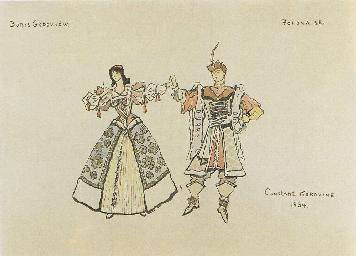 Boris Godounow
Polonaise.
Constant Korovine
1934.